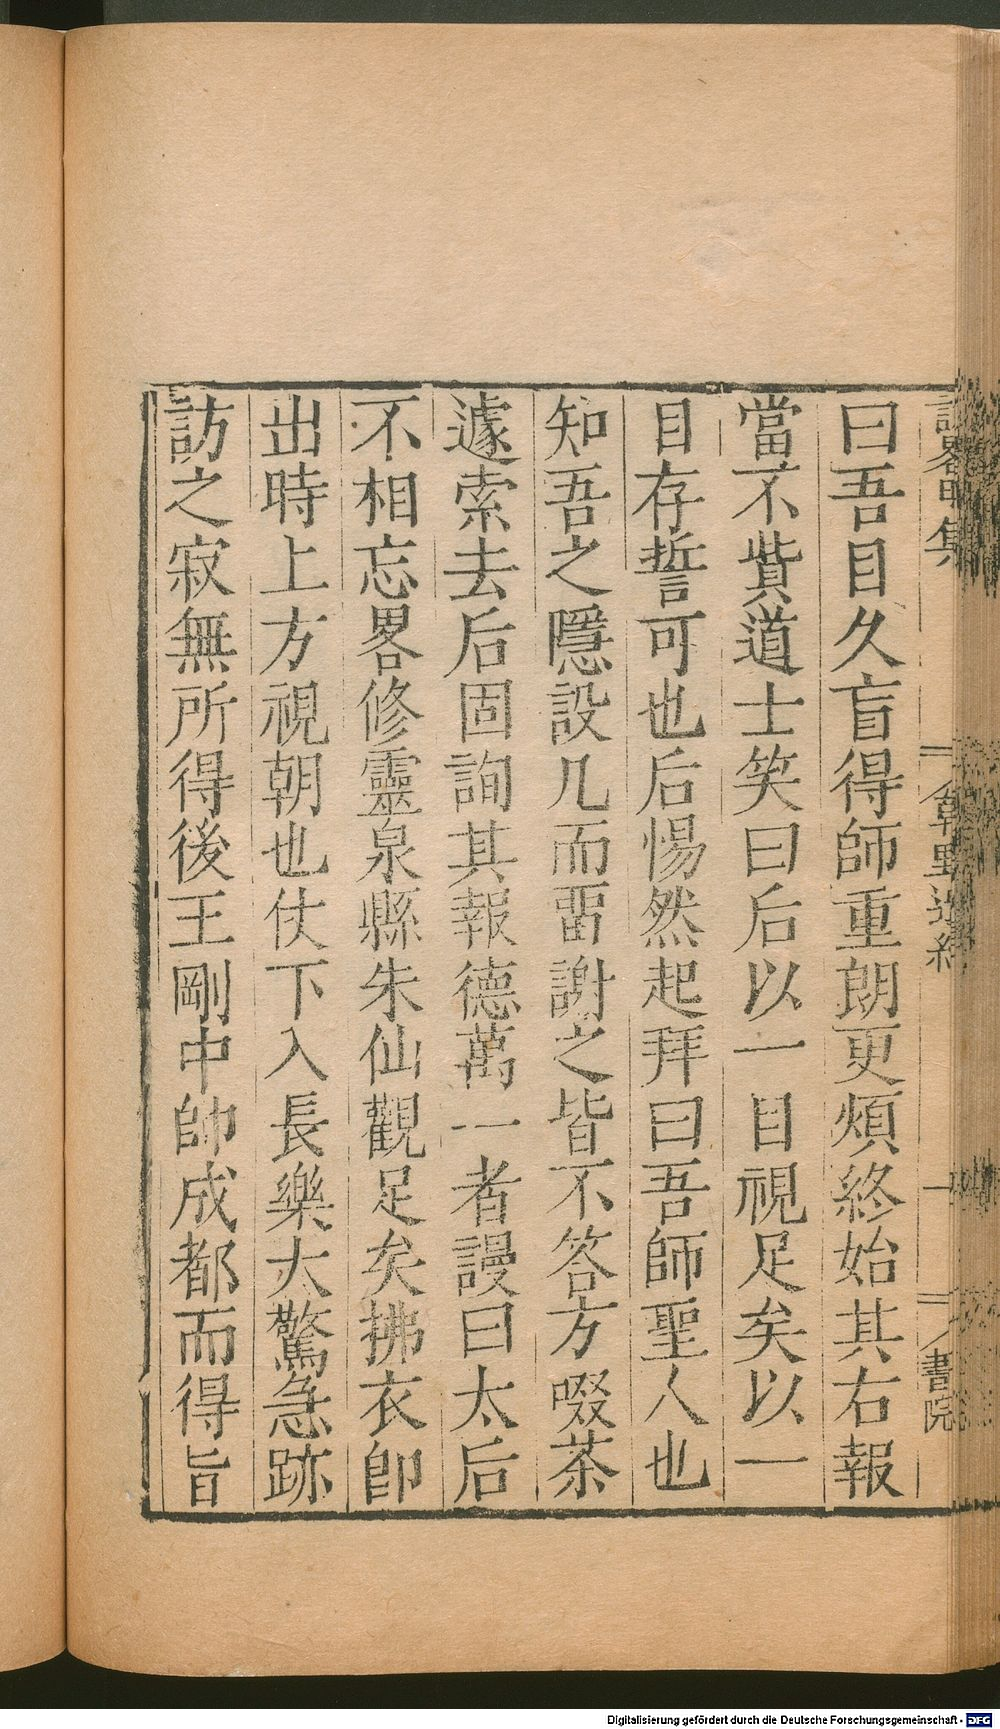 曰吾目久盲得師重朗更煩終始其右報
當不貲道士笑曰后以一目視足矣以一
目存誓可也后惕然起拜曰吾師聖人也
知吾之隱設几而畱謝之皆不答方啜茶
遽索去后固詢其報德萬一者謾曰太后
不相忘畧修靈泉縣朱仙觀足矣拂衣卽
出時上方視朝也仗下入長樂大驚急跡
訪之寂無所得後王剛中帥成都而得旨
書院
Digitalisierung gefördert durch die Deutsche Forschungsgemeinschaft - DFG